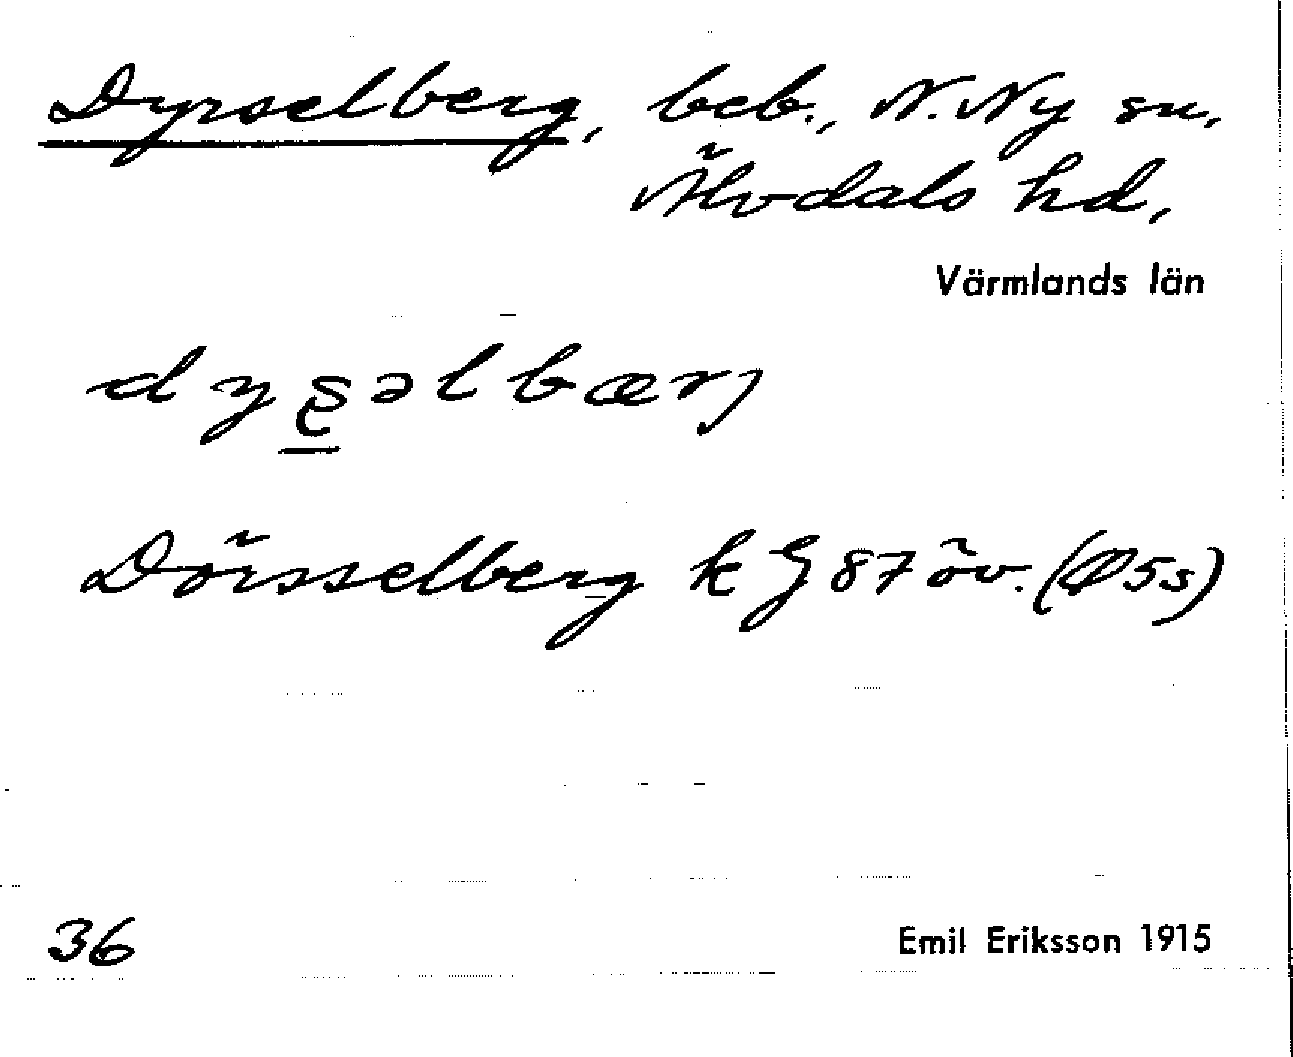 Dyrselberg, beb., N. Ny sn,
Älvdals hd,
Värmlands län
Dörsselberg k G 87 öv. (Ø5s)
36
Emil Eriksson 1915